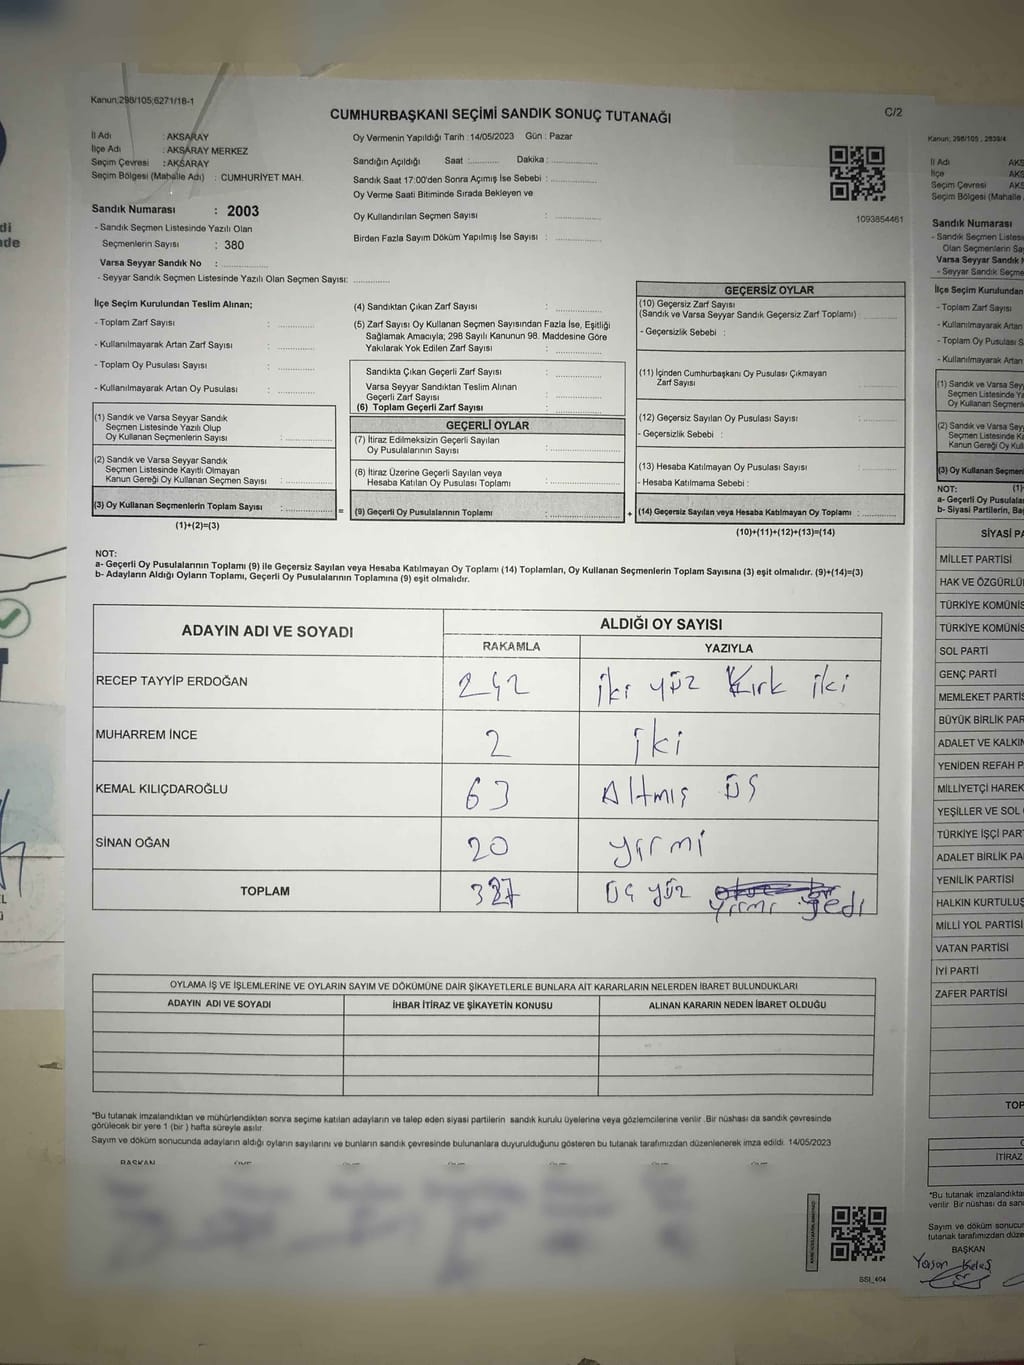 Kanun;298/105;6271/18-1
C/2
CUMHURBAŞKANI SEÇİMİ SANDIK SONUÇ TUTANAĞI
İl Adı : AKSARAY
İlçe Adı : AKSARAY MERKEZ
Seçim Çevresi : AKSARAY
Seçim Bölgesi (Mahalle Adı) : CUMHURİYET MAH.
Sandık Numarası : 2003
- Sandık Seçmen Listesinde Yazılı Olan
Seçmenlerin Sayısı : 380
Varsa Seyyar Sandık No :
- Seyyar Sandık Seçmen Listesinde Yazılı Olan Seçmen Sayısı:
Oy Vermenin Yapıldığı Tarih : 14/05/2023 Gün : Pazar
Sandığın Açıldığı Saat : Dakika :
Sandık Saat 17:00'den Sonra Açımış İse Sebebi :
Oy Verme Saati Bitiminde Sırada Bekleyen ve
Oy Kullandırılan Seçmen Sayısı :
Birden Fazla Sayım Döküm Yapılmış İse Sayısı :
1093854461
İlçe Seçim Kurulundan Teslim Alınan;
- Toplam Zarf Sayısı :
- Kullanılmayarak Artan Zarf Sayısı :
- Toplam Oy Pusulası Sayısı :
- Kullanılmayarak Artan Oy Pusulası :
(1) Sandık ve Varsa Seyyar Sandık
Seçmen Listesinde Yazılı Olup
Oy Kullanan Seçmenlerin Sayısı :
(2) Sandık ve Varsa Seyyar Sandık
Seçmen Listesinde Kayıtlı Olmayan
Kanun Gereği Oy Kullanan Seçmen Sayısı :
(3) Oy Kullanan Seçmenlerin Toplam Sayısı :
(1)+(2)=(3)
=
(4) Sandıktan Çıkan Zarf Sayısı :
(5) Zarf Sayısı Oy Kullanan Seçmen Sayısından Fazla İse, Eşitliği
Sağlamak Amacıyla; 298 Sayılı Kanunun 98. Maddesine Göre
Yakılarak Yok Edilen Zarf Sayısı :
Sandıkta Çıkan Geçerli Zarf Sayısı :
Varsa Seyyar Sandıktan Teslim Alınan
Geçerli Zarf Sayısı :
(6) Toplam Geçerli Zarf Sayısı :
GEÇERLİ OYLAR
(7) İtiraz Edilmeksizin Geçerli Sayılan
Oy Pusulalarının Sayısı :
(8) İtiraz Üzerine Geçerli Sayılan veya
Hesaba Katılan Oy Pusulası Toplamı :
(9) Geçerli Oy Pusulalarının Toplamı :
+
GEÇERSİZ OYLAR
(10) Geçersiz Zarf Sayısı
(Sandık ve Varsa Seyyar Sandık Geçersiz Zarf Toplamı) :
- Geçersizlik Sebebi :
(11) İçinden Cumhurbaşkanı Oy Pusulası Çıkmayan
Zarf Sayısı :
(12) Geçersiz Sayılan Oy Pusulası Sayısı :
- Geçersizlik Sebebi :
(13) Hesaba Katılmayan Oy Pusulası Sayısı :
- Hesaba Katılmama Sebebi :
(14) Geçersiz Sayılan veya Hesaba Katılmayan Oy Toplamı :
(10)+(11)+(12)+(13)=(14)
NOT:
a- Geçerli Oy Pusulalarının Toplamı (9) ile Geçersiz Sayılan veya Hesaba Katılmayan Oy Toplamı (14) Toplamları, Oy Kullanan Seçmenlerin Toplam Sayısına (3) eşit olmalıdır. (9)+(14)=(3)
b- Adayların Aldığı Oyların Toplamı, Geçerli Oy Pusulalarının Toplamına (9) eşit olmalıdır.
ADAYIN ADI VE SOYADI
ALDIĞI OY SAYISI
RAKAMLA YAZIYLA
RECEP TAYYİP ERDOĞAN 242 iki yüz Kırk iki
MUHARREM İNCE 2 iki
KEMAL KILIÇDAROĞLU 63 Altmış üş
SİNAN OĞAN 20 yirmi
TOPLAM 327 üç yüz
yirmi yedi
OYLAMA İŞ VE İŞLEMLERİNE VE OYLARIN SAYIM VE DÖKÜMÜNE DAİR ŞİKAYETLERLE BUNLARA AİT KARARLARIN NELERDEN İBARET BULUNDUKLARI
ADAYIN ADI VE SOYADI İHBAR İTİRAZ VE ŞİKAYETİN KONUSU ALINAN KARARIN NEDEN İBARET OLDUĞU
*Bu tutanak imzalandıktan ve mühürlendikten sonra seçime katılan adayların ve talep eden siyasi partilerin sandık kurulu üyelerine veya gözlemcilerine verilir .Bir nüshası da sandık çevresinde
görülecek bir yere 1 (bir ) hafta süreyle asılır.
Sayım ve döküm sonucunda adayların aldığı oyların sayılarını ve bunların sandık çevresinde bulunanlara duyurulduğunu gösteren bu tutanak tarafımızdan düzenlenerek imza edildi. 14/05/2023
BAŞKAN
SSI_404
Kanun; 298/105 ; 2839/4
İl Adı AKS
İlçe AKS
Seçim Çevresi AKS
Seçim Bölgesi (Mahalle
Sandık Numarası
- Sandık Seçmen Listesi
Olan Seçmenlerin Sa
Varsa Seyyar Sandık N
- Seyyar Sandık Seçmen
İlçe Seçim Kurulundan
- Toplam Zarf Sayısı
- Kullanılmayarak Artan
- Toplam Oy Pusulası S
- Kullanılmayarak Artan
(1) Sandık ve Varsa Sey
Seçmen Listesinde Ya
Oy Kullanan Seçmenle
(2) Sandık ve Varsa Sey
Seçmen Listesinde Ka
Kanun Gereği Oy Kull
(3) Oy Kullanan Seçmen
NOT: (1)
a- Geçerli Oy Pusulala
b- Siyasi Partilerin, Ba
SİYASİ PA
MİLLET PARTİSİ
HAK VE ÖZGÜRLÜ
TÜRKİYE KOMÜNİS
TÜRKİYE KOMÜNİS
SOL PARTİ
GENÇ PARTİ
MEMLEKET PARTİS
BÜYÜK BİRLİK PAR
ADALET VE KALKIN
YENİDEN REFAH P
MİLLİYETÇİ HAREK
YEŞİLLER VE SOL
TÜRKİYE İŞÇİ PART
ADALET BİRLİK PA
YENİLİK PARTİSİ
HALKIN KURTULUŞ
MİLLİ YOL PARTİSİ
VATAN PARTİSİ
İYİ PARTİ
ZAFER PARTİSİ
TOP
İTİRAZ
*Bu tutanak imzalandıkta
verilir. Bir nüshası da san
Sayım ve döküm sonucu
tutanak tarafımızdan düze
BAŞKAN